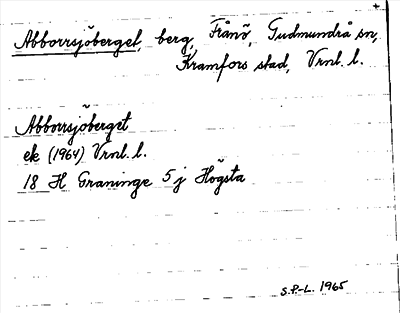 Abborrsjöberget, berg, Frånö, Gudmundrå sn,
Kramfors stad, Vrnl. l.
Abborrsjöberget
ek (1964) Vrnl. l.
18 H Graninge 5 j Högsta
S.P.-L. 1965